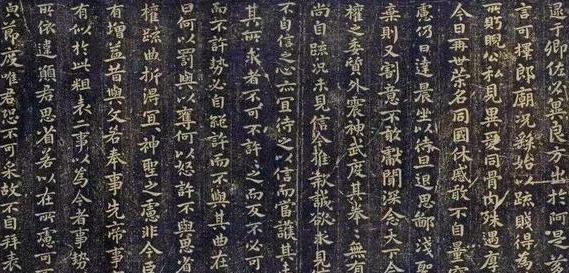 逮于卿佐必冀良方出於阿是芻
言可擇郎廟況繇始以疏賤得為
所眄睨公私見異愛同骨肉殊遇厚
今日再世榮名同國休慼敢不自量
慮仍日達晨坐以待旦退思鄙淺
棄則又割意不敢獻聞深念天下今
權之委質外震神武度其拳拳無有
尚自疏況未見信今推款誠欲求見
不自信之心亦宜待之以信而當護其未
其所求者不可不許許之而反不必可
而不許勢必自絕許而不與其曲在
曰何以罰與以奪何以怒許不與思省
權疏曲折得宜宜神聖之慮非今臣
有增益昔與文若奉事先帝事
有似於此粗表二事以為今者事勢
所依違願君思省若以在所慮可不
節度唯君恐不可采故不自拜表